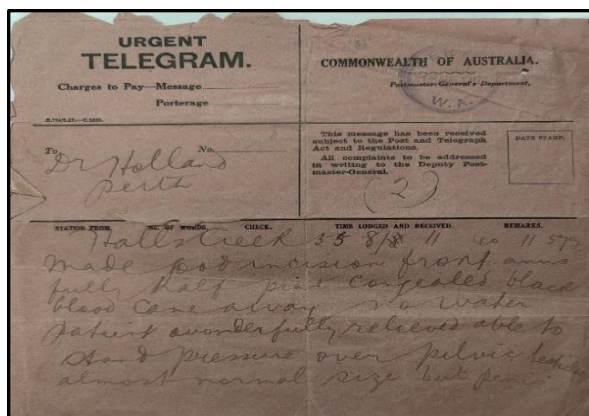 URGENT
TELEGRAM.
Charges to Pay—Message
Porterage
COMMONWEALTH OF AUSTRALIA.
Postmaster-General's Department,
W. A.
To
No.
Dr Holland
Perth
This message has been received
subject to the Post and Telegraph
Act and Regulations.
All complaints to be addressed
in writing to the Deputy Post-
master-General.
DATE STAMP.
(2)
STATION FROM. NO. OF WORDS. CHECK. TIME LODGED AND RECEIVED. REMARKS.
Halls Creek 55 8/ 11
Made incision front anus
fully half pint congealed black
blood came away no water
patient wonderfully relieved able to
stand pressure over pelvic
almost normal size but penis